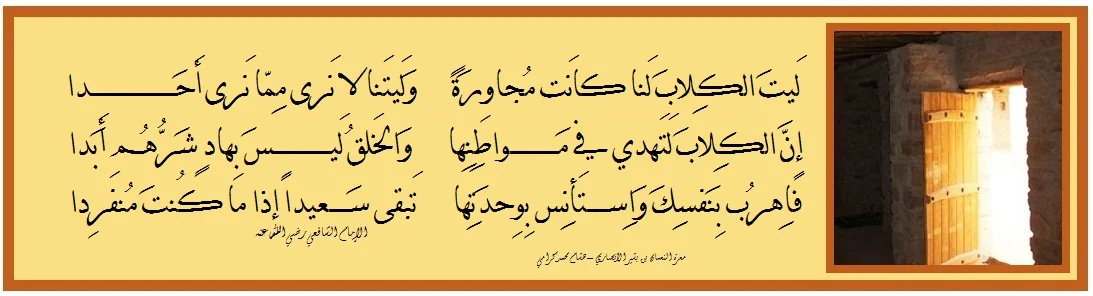 لَيتَ الكِلابَ لَنا كانَت مُجاوِرَةً وَلَيتَنا لا نَرى مِمّا نَرى أَحَدا
إِنَّ الكِلابَ لَتَهدي في مَواطِنِها وَالخَلقُ لَيسَ بِهادٍ شَرُّهُم أَبَدا
فَاِهرُب بِنَفسِكَ وَاِستَأنِس بِوِحدَتِها تَبقى سَعيداً إِذا ما كُنتَ مُنفَرِدا
الإمام الشافعي رضي الله عنه
معرة النعمان بن بشير الأنصاري - هشام محمد كرامي